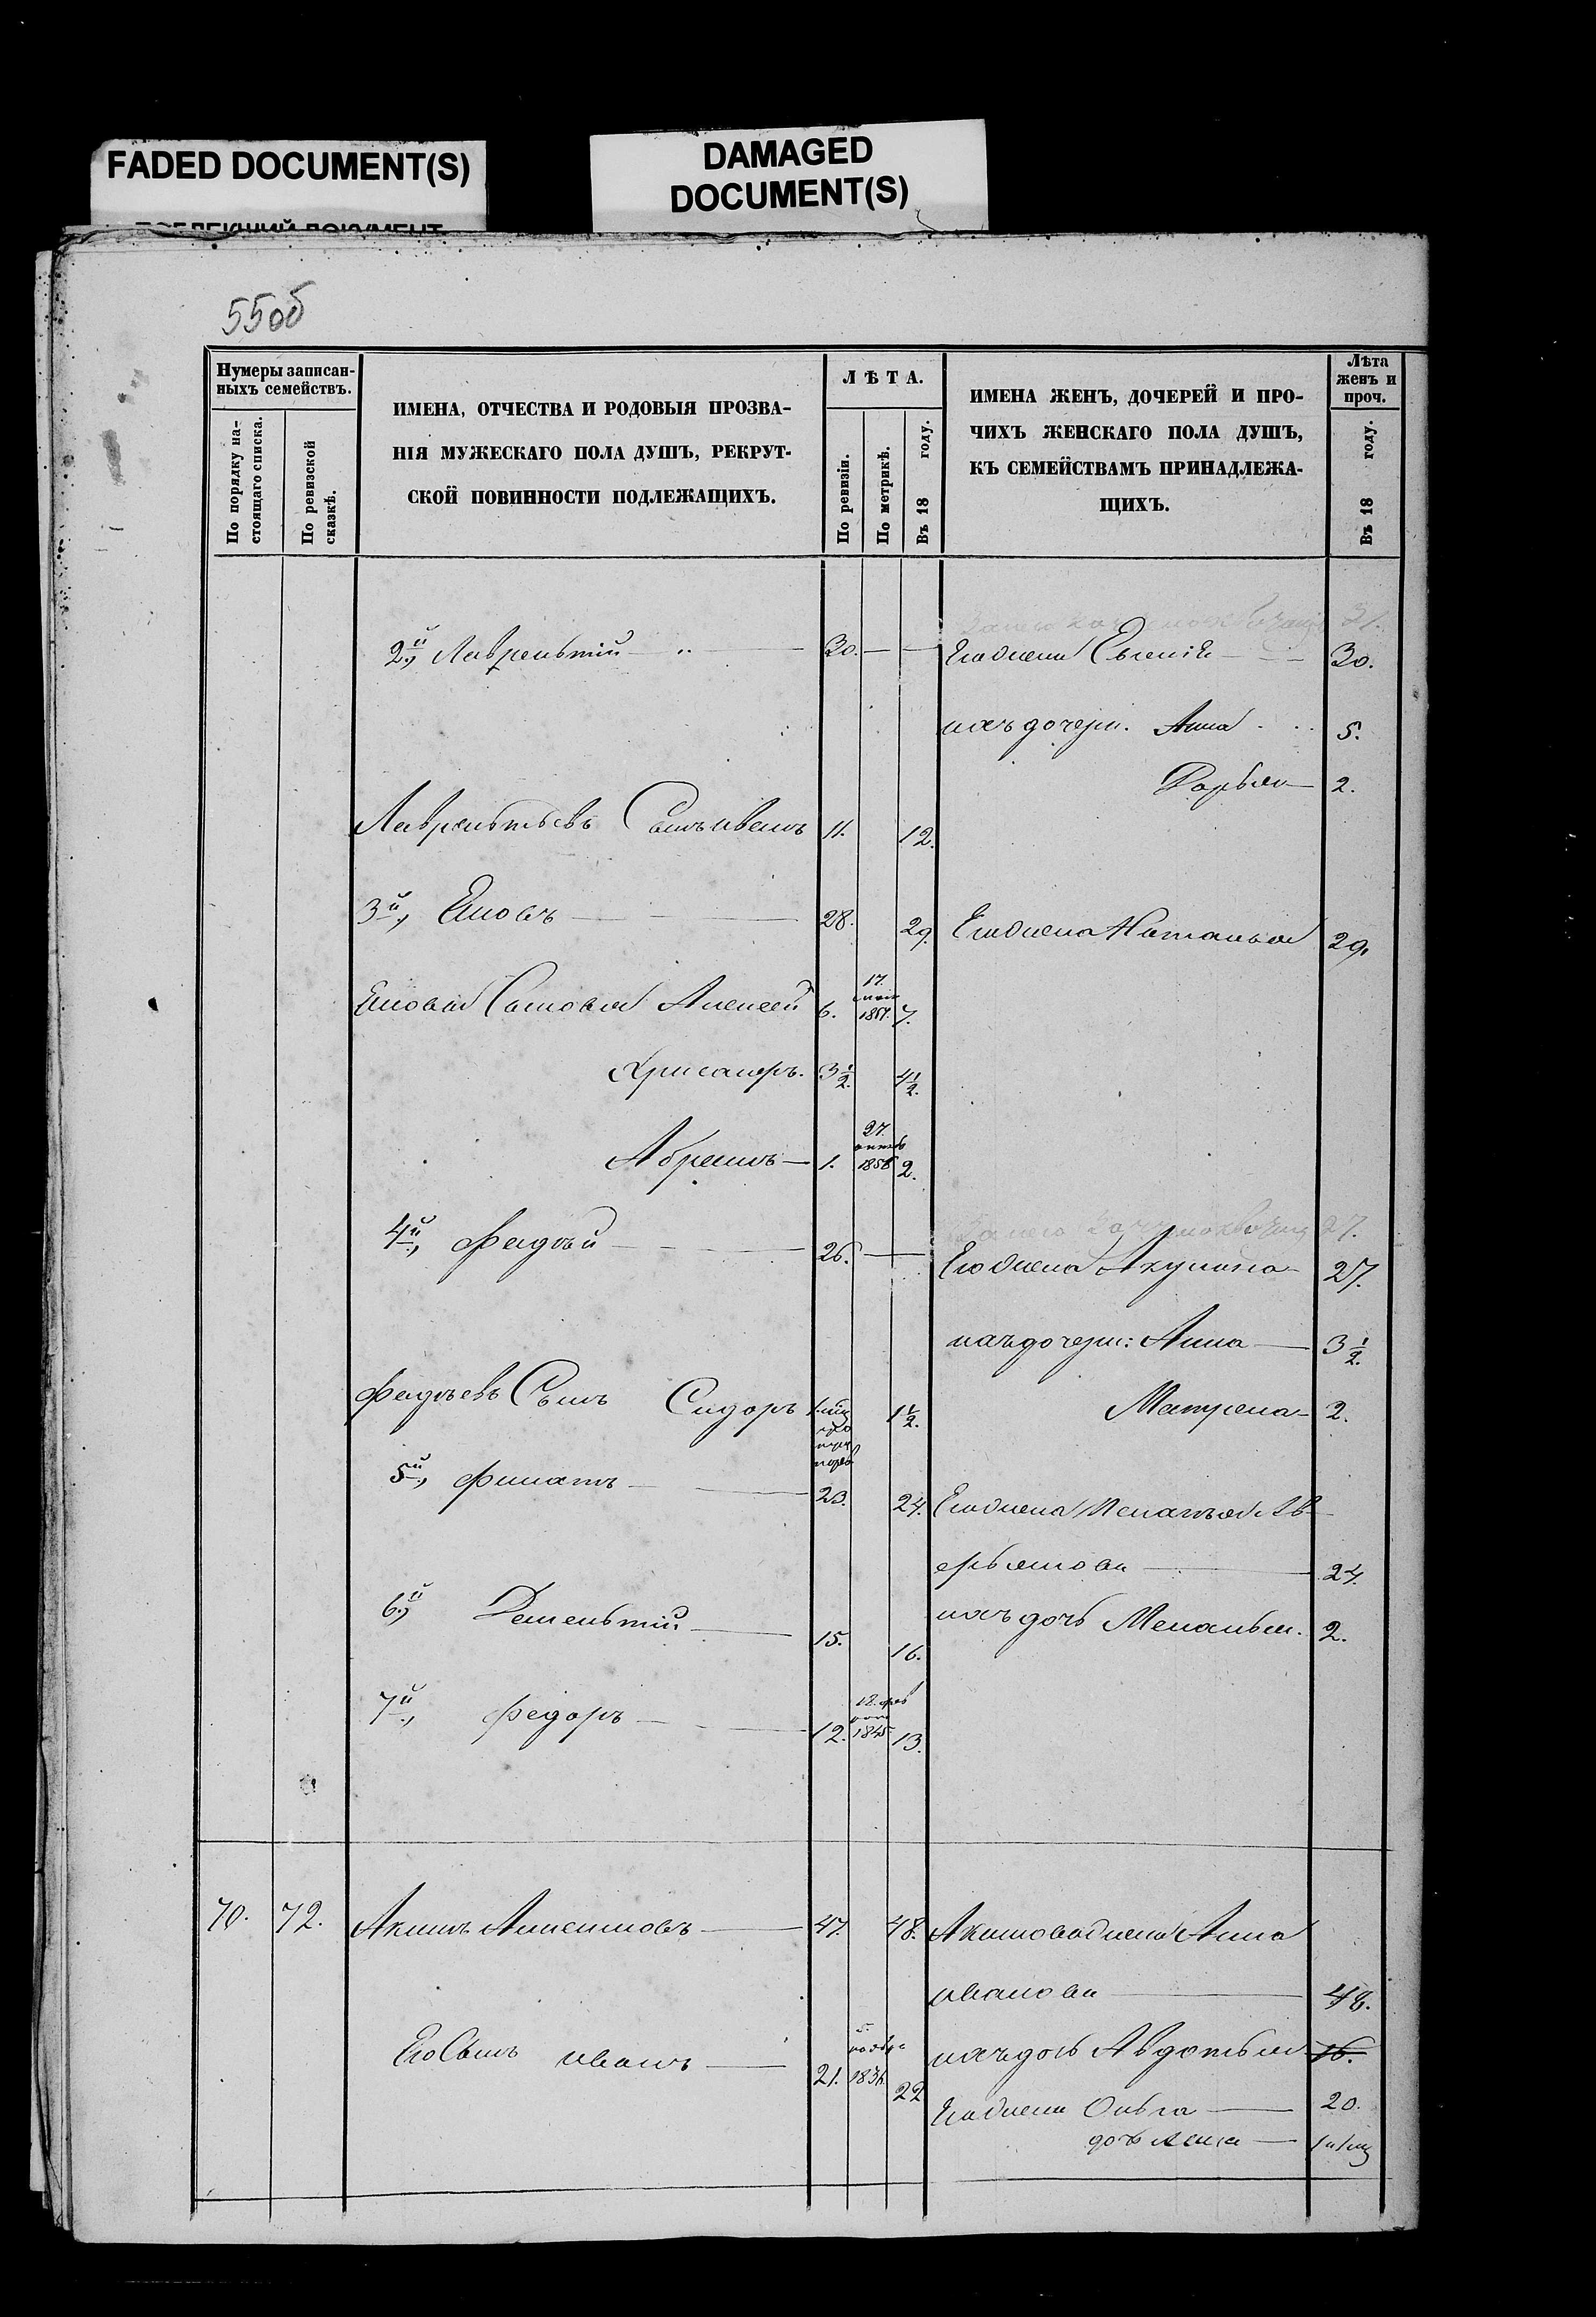 FADED DOCUMENT(S)
DAMAGED
DOCUMENT(S)
55об
Нумеры записан-
ныхъ семействъ.
По порядку на-
стоящаго списка.
По ревизской
сказкѣ.
ИМЕНА, ОТЧЕСТВА И РОДОВЫЯ ПРОЗВА-
НІЯ МУЖЕСКАГО ПОЛА ДУШЪ, РЕКРУТ-
СКОЙ ПОВИННОСТИ ПОДЛЕЖАЩИХЪ.
ЛѢТА.
По ревизіи.
По метрикѣ.
Въ 18 году.
ИМЕНА ЖЕНЪ, ДОЧЕРЕЙ И ПРО-
ЧИХЪ ЖЕНСКАГО ПОЛА ДУШЪ,
КЪ СЕМЕЙСТВАМЪ ПРИНАДЛЕЖА-
ЩИХЪ.
Лѣта
женъ и
проч.
Въ 18 году.
31.
2й, Лаврентій 30. Его жена Евгенія 30.
ихъ дочери. Анна 5.
Дарья 2.
Лаврентьевъ Сынъ иванъ 11. 12.
3й, Емова 28. 29. Его жена Наталья 29.
Сыновья Алексей 6. 17. 1851. 7.
Хрисанфъ. 3½. 4½.
Абрамъ 1. 27. 1856 2.
27.
4й, Фадѣй 26. Его жена Акулина 27.
ихъ дочери: Анна 3½.
Фадѣевъ Сынъ Сидоръ 1½. Матрена 2.
5й, Филатъ 23. 24. Его жена Меланья Ав-
ерьянова 24.
6й, Дементій 15. 16. ихъ дочь Меланья. 2.
7й, Федоръ 12. 18. фев 1845 13.
70. 72. Акимъ Алексеновъ 47. 48. Акимова жена Анна
иванова 48.
ихъ дочь Авдотья 16.
Его Сынъ иванъ 21. 5. ноябр 1836. 22
Его жена Ольга 20.
дочь Анна